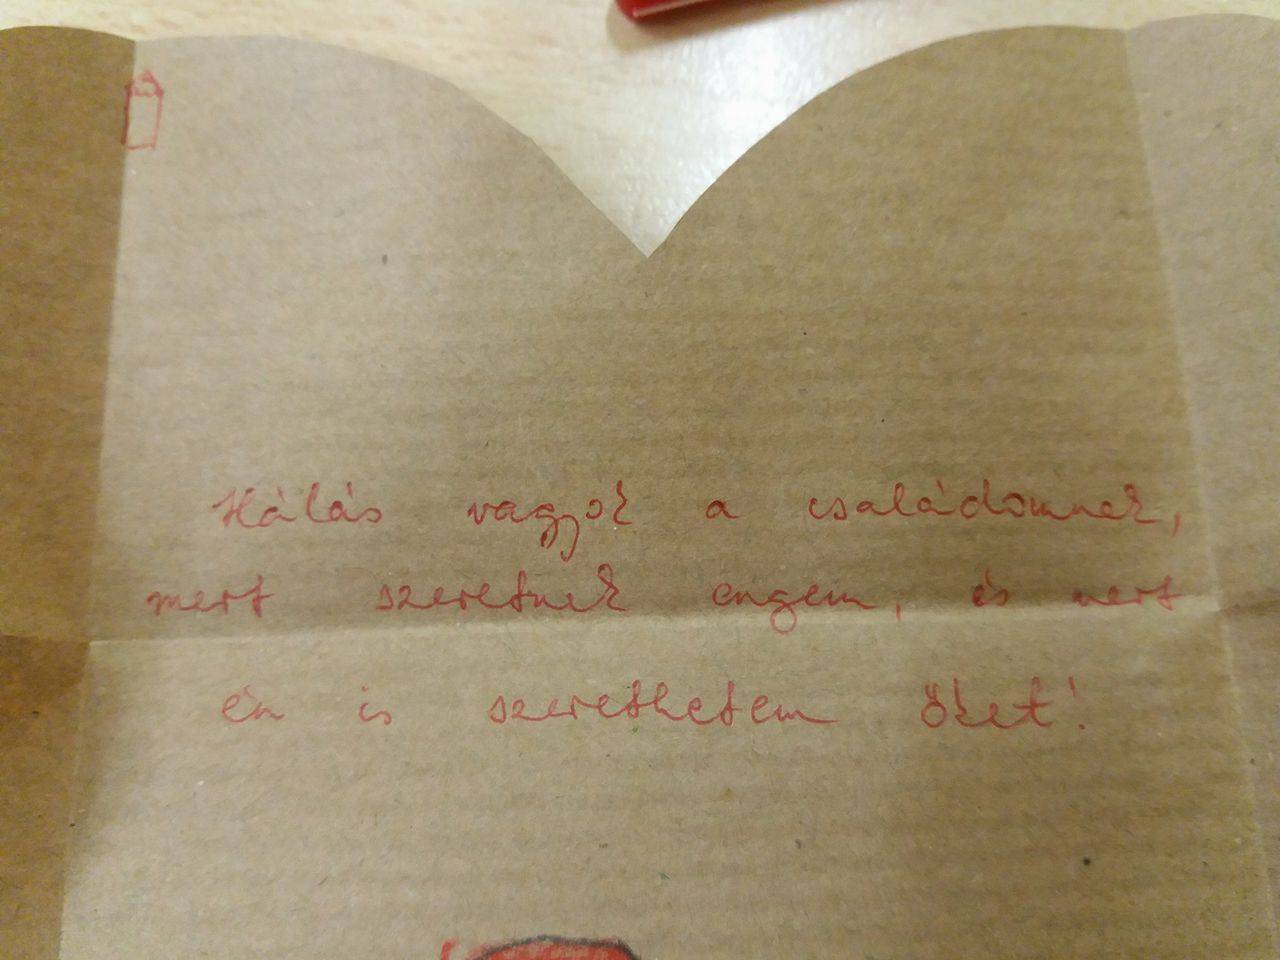 Hálás vagyok a családomnak,
mert szeretnek engem, és mert
én is szerethetem őket!